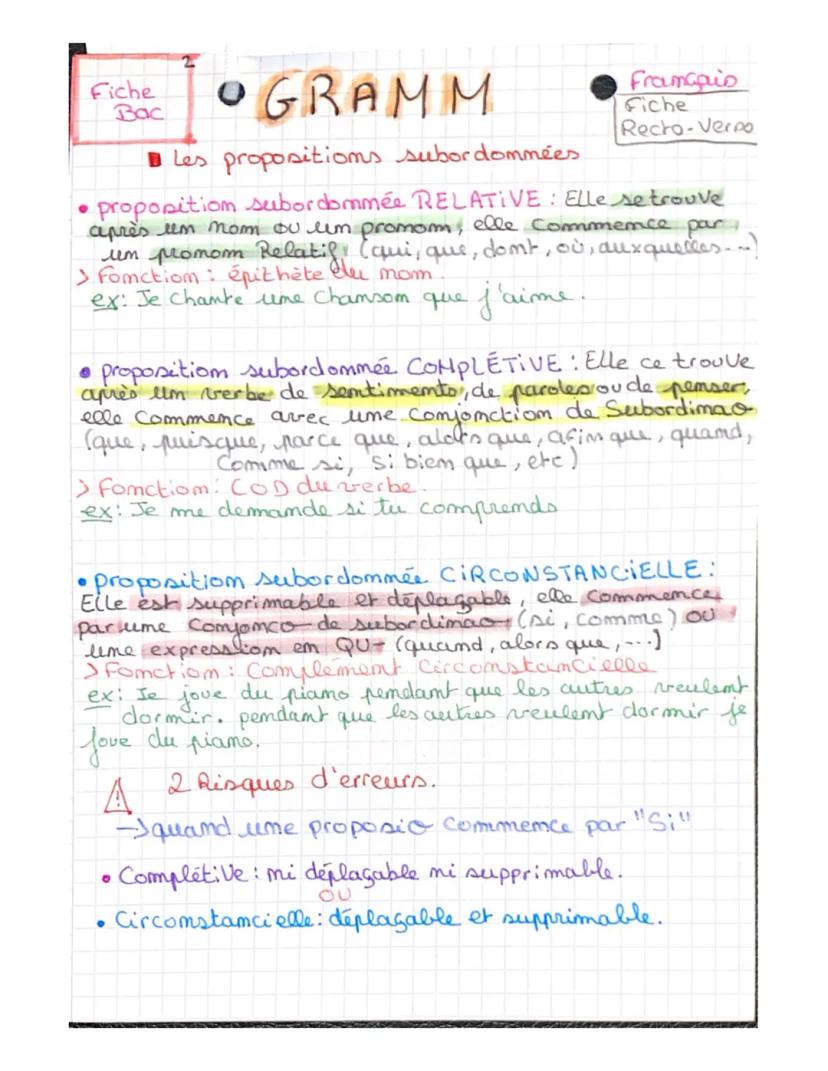 2
Fiche
Bac
GRAMM
Français
Fiche
Recto-Verso
Les propositions subordonnées
• proposition subordonnée RELATIVE : Elle se trouve
après un nom ou un pronom, elle commence par
un pronom Relatif. (qui, que, dont, où, auxquelles...)
> Fonction : épithète du nom.
ex: Je chante une chanson que j'aime.
• proposition subordonnée COMPLÉTIVE : Elle ce trouve
après un verbe de sentiments, de paroles ou de penser,
elle commence avec une Conjonction de Subordinao
(que, puisque, parce que, alors que, afin que, quand,
comme si, si bien que, etc)
> Fonction: COD du verbe.
ex: Je me demande si tu comprends
• proposition subordonnée CIRCONSTANCIELLE :
Elle est supprimable et déplaçable, elle commence
par une Conjonco de subordinao (si, comme) ou
une expression en QU- (quand, alors que, ...)
> Fonction : Complément Circonstancielle
ex: Je joue du piano pendant que les autres veulent
dormir. pendant que les autres veulent dormir je
joue du piano.
⚠ 2 Risques d'erreurs.
→ quand une proposio commence par "Si"
• Complétive : ni déplaçable ni supprimable.
OU
• Circonstancielle : déplaçable et supprimable.